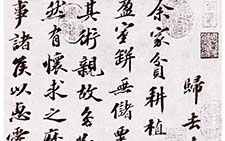 歸去
余家貧耕植
盈室缾無儲粟
其術親故多
然有懷求之靡
事諸侯以惠愛